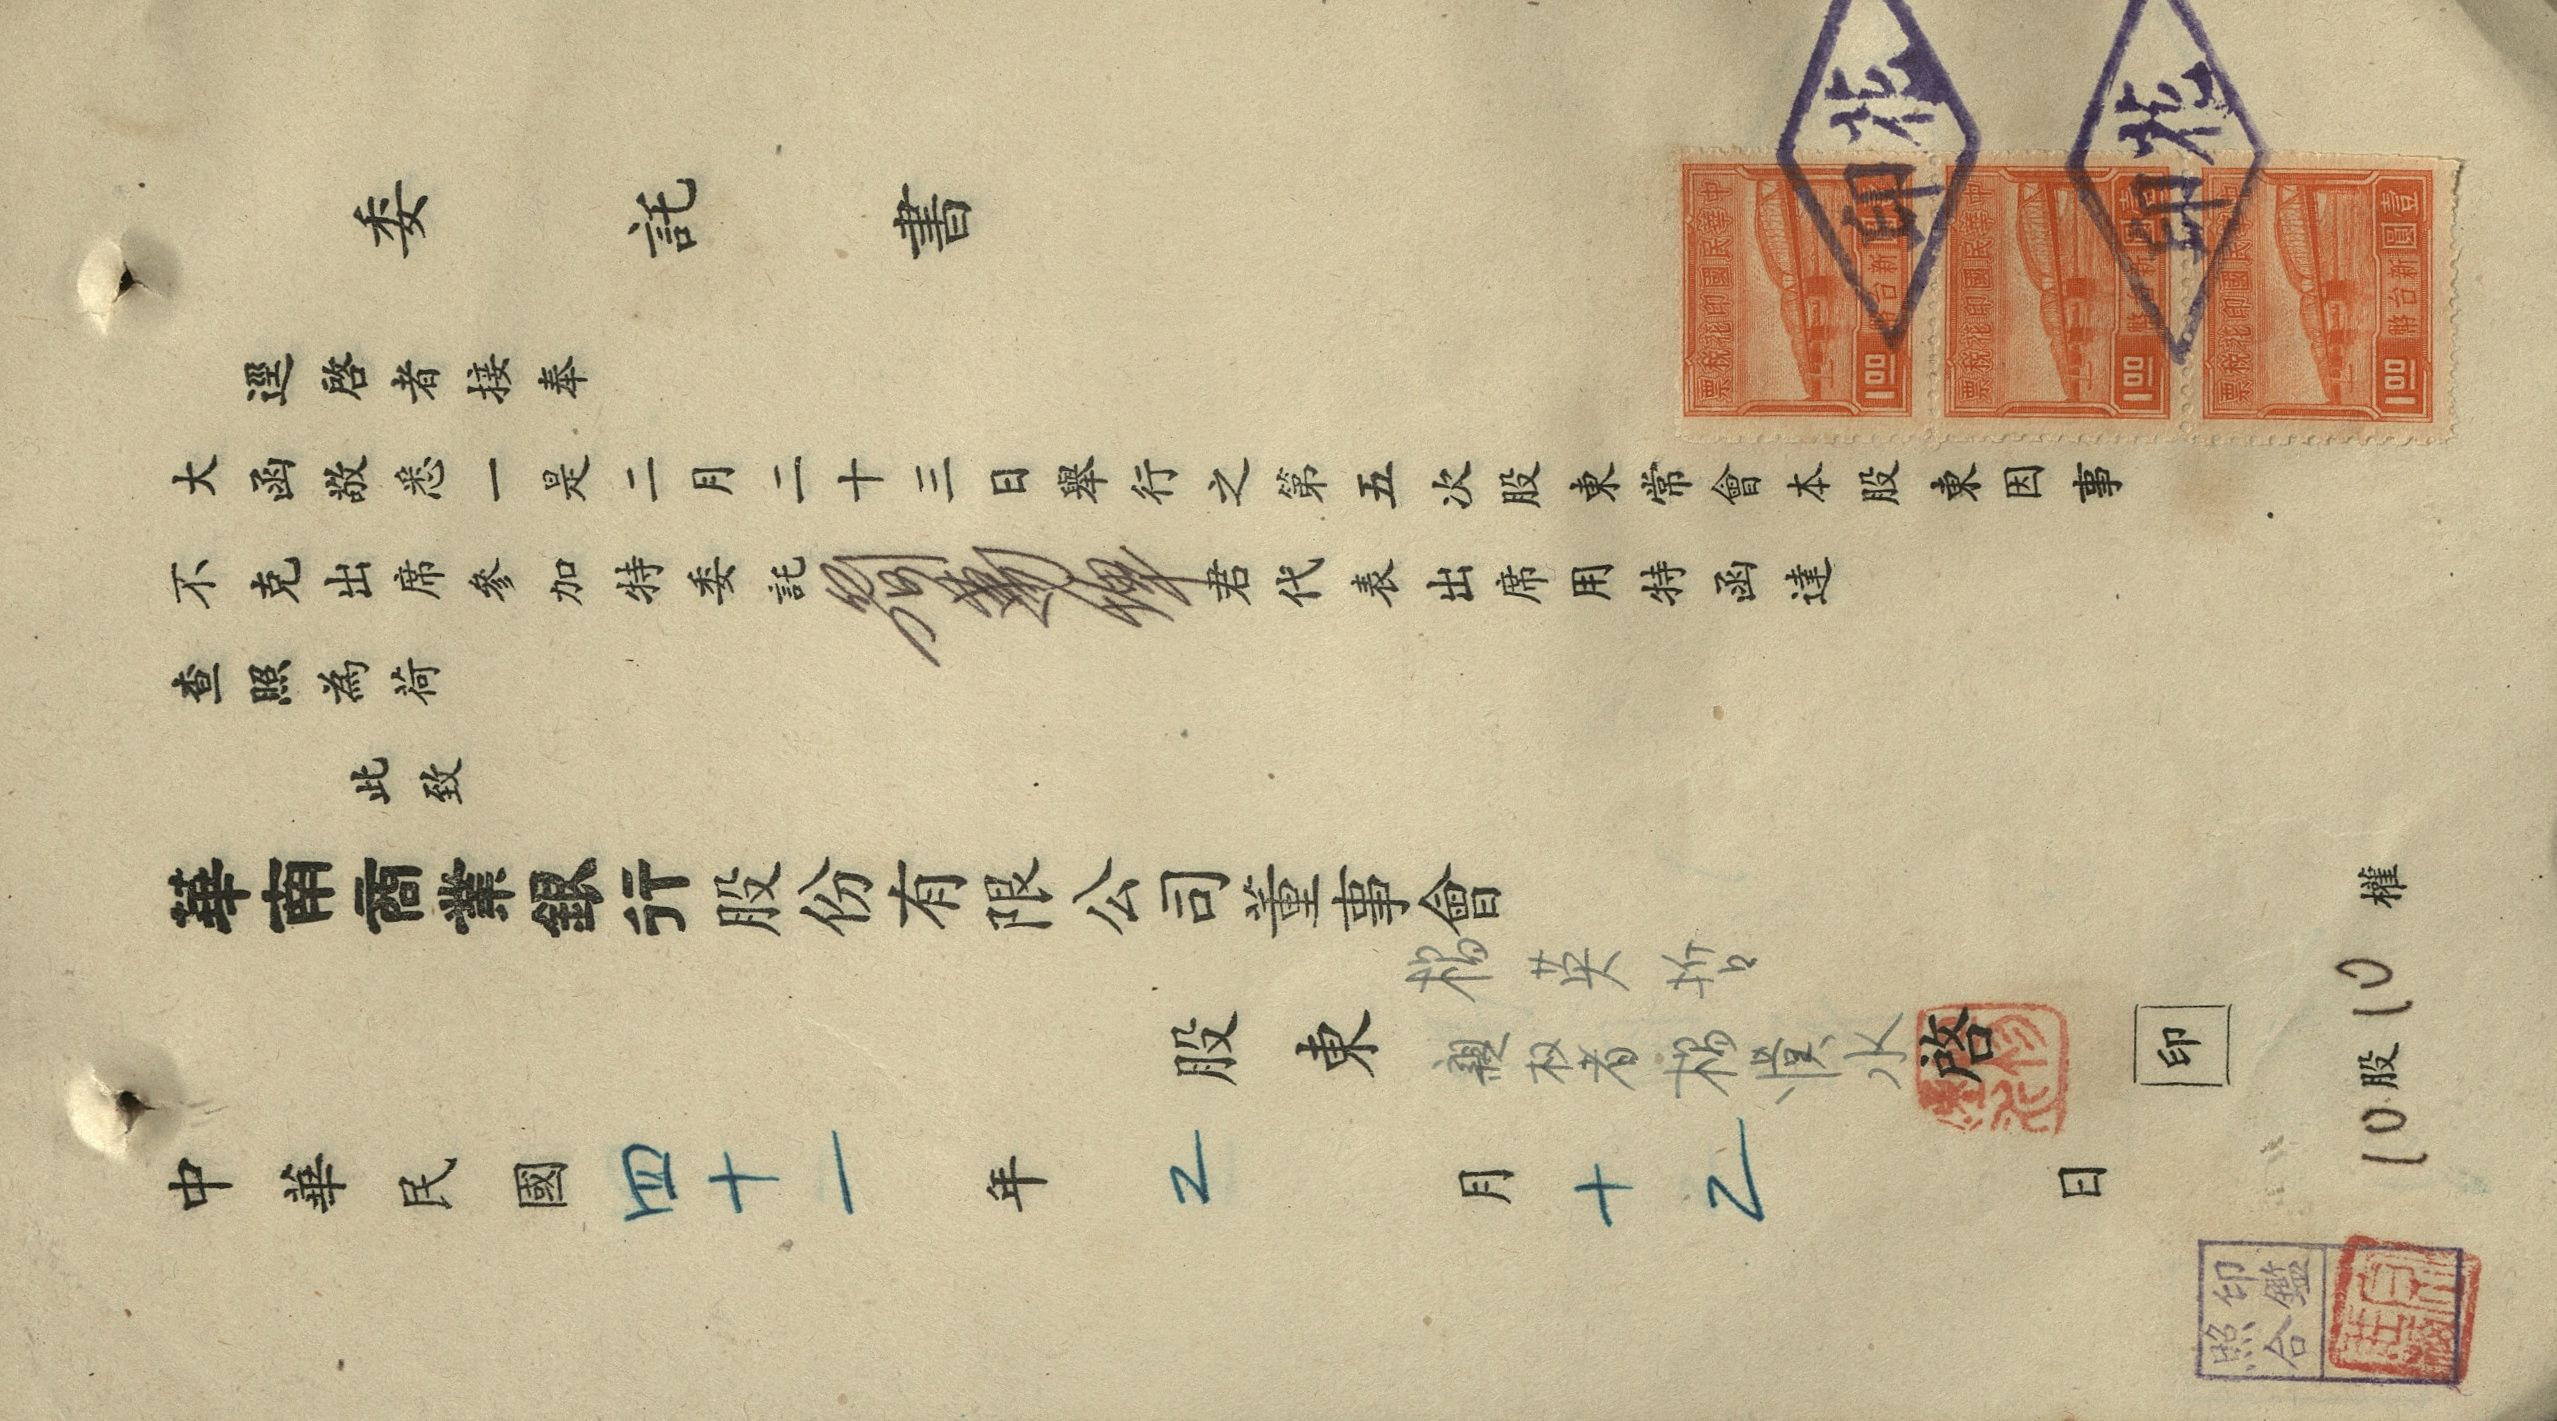 委託書
逕啓者接奉
大函敬悉一是二月二十三日舉行之第五次股東常會本股東因事
不克出席參加特委託劉啓光君代表出席用特函達
查照為荷
此致
華南商業銀行股份有限公司董事會
股東 楊英哲
親权者楊澄水 啓 印
10股10權
中華民國四十一年2月十2日
中華民國印花稅票 壹圓 新台幣 1.00
中華民國印花稅票 壹圓 新台幣 1.00
中華民國印花稅票 壹圓 新台幣 1.00
印花
印花
印鑑
照合